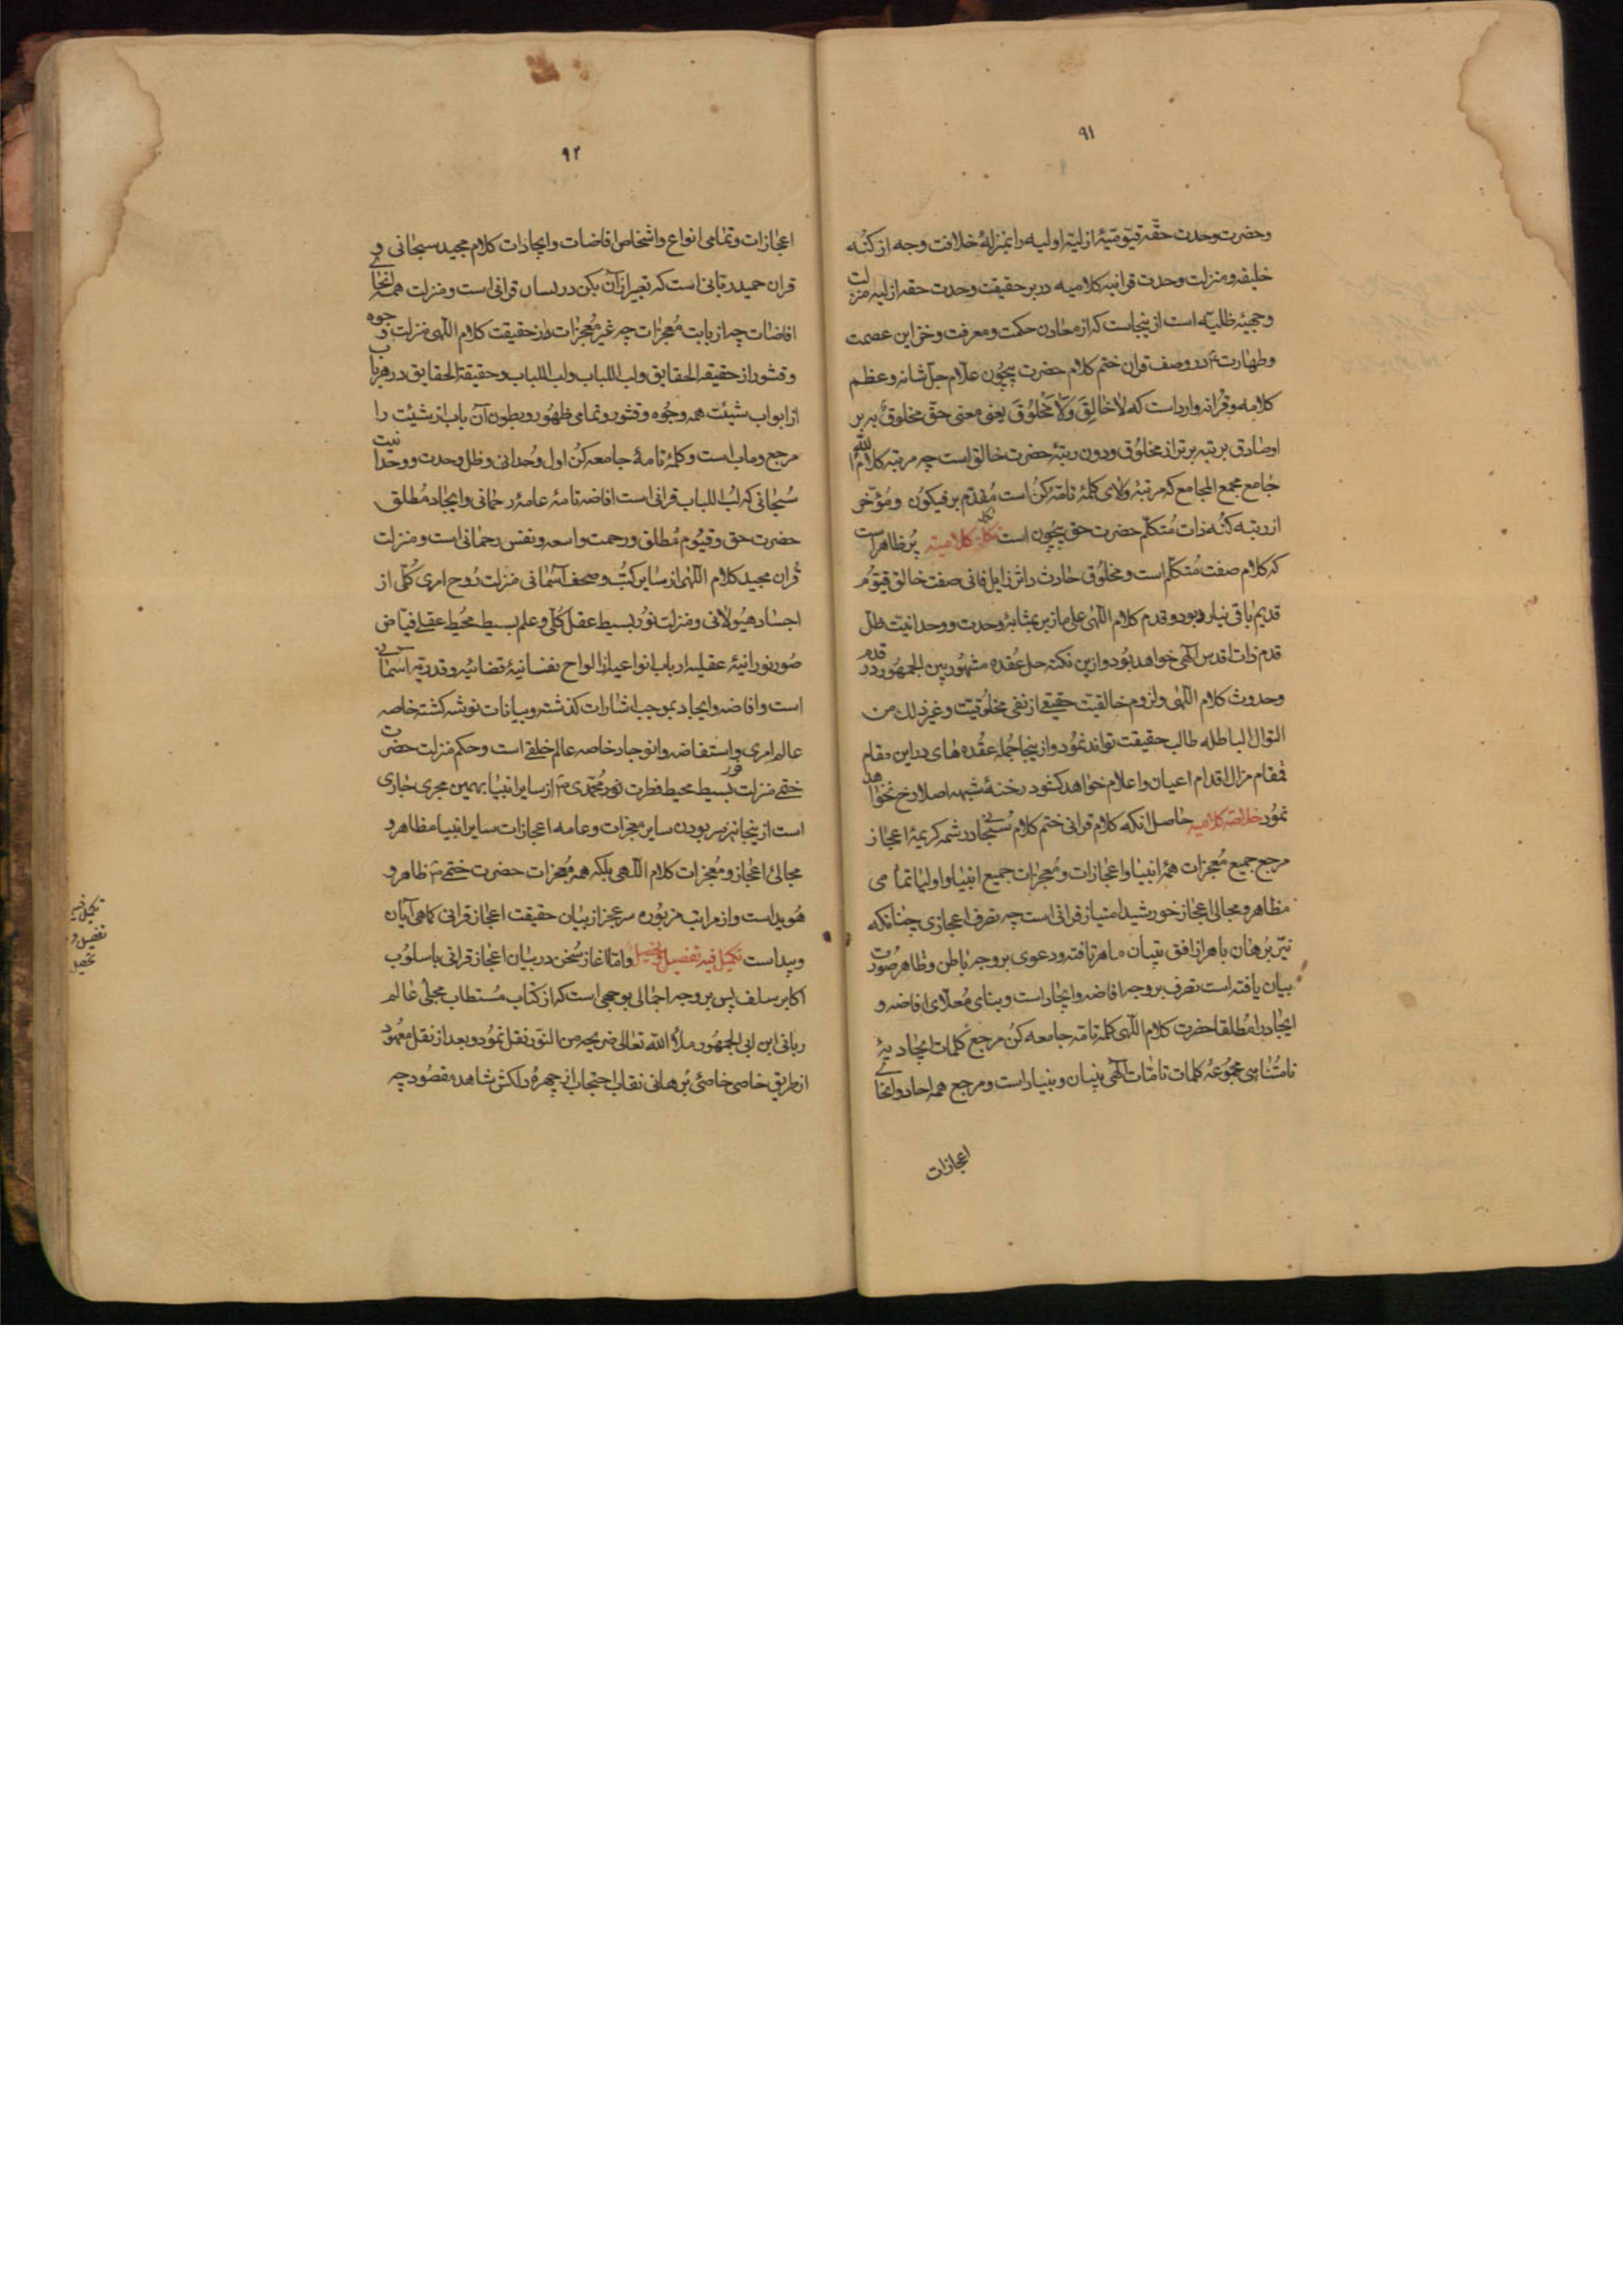 ۹۱
وحضرت وحدت حقه قیومیهٔ ازلیه اولیه را بمنزلهٔ خلافت وجه از کنه
خلیفه ومنزلت وحدت قرانیه کلامیه در بر حقیقت وحدت حقه ازلیه منزلت
وجهیهٔ ظلیه است از ینجاست که از معادن حکمت ومعرفت این عصمت
وطهارت ع در وصف قران ختم کلام حضرت بیچون علام جل شانه وعظم
کلامه وقرانه وارد است که لا خالِقَ وَلا مَخلُوقَ یعنی معنی حق مخلوق به بر
او صادق برتبه برتر از مخلوق ودون رتبهٔ حضرت خالق است چه مرتبه کلام الله
جامع مجمع المجامع که مرتبهٔ والای کلمهٔ تامه کن است مقدم بر فیکون ومؤخر
از رتبه کنه ذات متکلم حضرت حق بیچون است کلامیته پر ظاهر است
که کلام صفت متکلم است ومخلوق حادث داثر زایل فانی صفت خالق قیوم
قدیم باقی نیارد بود وقدم کلام اللهی علی ما زبر بمثابهٔ وحدت ووحدانیت ظل
قدم ذات اقدس الهی خواهد بود وازین نکته حل عقده مشهور بین الجمهور در قدم
وحدوث کلام اللهی ولزوم خالقیت حقیقی از نفی مخلوقیت وغیر ذلك من
التوال الباطله طالب حقیقت تواند نمود وازینجا جمله عقده های در این مقام
فمقام مزال اقدام اعیان واعلام خواهد کشود رخنهٔ شبهه اصلا رخ نخواهد
نمود خلاصه کلامیه حاصل انکه کلام قرانی ختم کلام سبحانی در شمه کریمهٔ اعجاز
مرجع جمیع معجزات همهٔ انبیا واعجازات ومعجزات جمیع انبیا واولیا تمامی
مظاهر ومجالی اعجاز خورشید امتیاز قرانی است چه تصرف اعجازی چنانکه
نیر برهان باهر از افق بنیان ماهر تافته ودعوی بر وجه باطن وظاهر صورت
بیان یافته است تصرف بر وجه افاضه وایجاد است وبنای معلای افاضه و
ایجاد را مطلقا حضرت کلام اللهی کلمهٔ تامه جامعه کن مرجع کلمات ایجادیهٔ
نامتناهی مجموعهٔ کلمات تامات الهی بنیان وبنیاد است ومرجع همه احاد وانحای
اعجازات
۹۲
اعجازات وتمامی انواع واشخاص افاضات وایجادات کلام مجید سبحانی و
قران حمید ربانی است که تعبیر از آن بکن در لسان قرانی است ومنزلت همه انحای
افاضات چه از بابت معجزات چه غیر معجزات در حقیقت کلام اللهی منزلت وجوه
وقشور از حقیقه الحقایق ولب اللباب ولب اللباب وحقیقة الحقایق در هر باب
از ابواب شیئت همه وجوه وقشور وتمامی ظهور وبطون آن باب از شیئت را
مرجع وماب است وکلمهٔ تامهٔ جامعه کن اول وحدانی وظل وحدت ووحدانیت
سبحانی که لب اللباب قرانی است افاضه تامهٔ عامهٔ رحمانی وایجاد مطلق
حضرت حق وقیوم مطلق ورحمت واسعه ونفس رحمانی است ومنزلت
قران مجید کلام اللهی از سایر کتب وصحف آسمانی منزلت روح امری کلی از
اجساد هیولانی ومنزلت نور بسیط عقل کلی وعلم بسیط محیط عقلی فیاض
صور نورانیهٔ عقلیه ارباب انواعی از الواح نفسانیهٔ قضائیه وقدریه اسمائی
است وافاضه وایجاد بموجب اشارات کذشته وبیانات نوشته کشته خاصه
عالم امری واستفاضه وانوجاد خاصه عالم خلقی است وحکم منزلت حضرت
ختمی منزلت بسیط محیط فطرت نور محمدی ص از سایر انبیا بهمین مجری جاری
است ازینجا نیز سر بودن سایر معجزات وعامه اعجازات سایر انبیا مظاهر و
مجالی اعجاز ومعجزات کلام اللهی بلکه همه معجزات حضرت ختمی ص ظاهر و
هویداست واز مراتب مزبوره سر عجز از بیان حقیقت اعجاز قرانی کماهی آیان
وپیداست تکمیل فیه تفصیل وتحصیل واما اغاز سخن در بیان اعجاز قرانی باسلوب
اکابر سلف پس بر وجه اجمالی بوجهی است که از کتاب مستطاب مجلی عالم
ربانی ابن ابی الجمهور ملأ الله تعالی ضریحه من النور نقل نمود وبعد از نقل معهود
از طریق خاصی خاصیٔ برهانی نقاب احتجاب از چهرهٔ دلکش شاهد مقصود چه
تکمیل فیه
تفصیل و
تحصیل